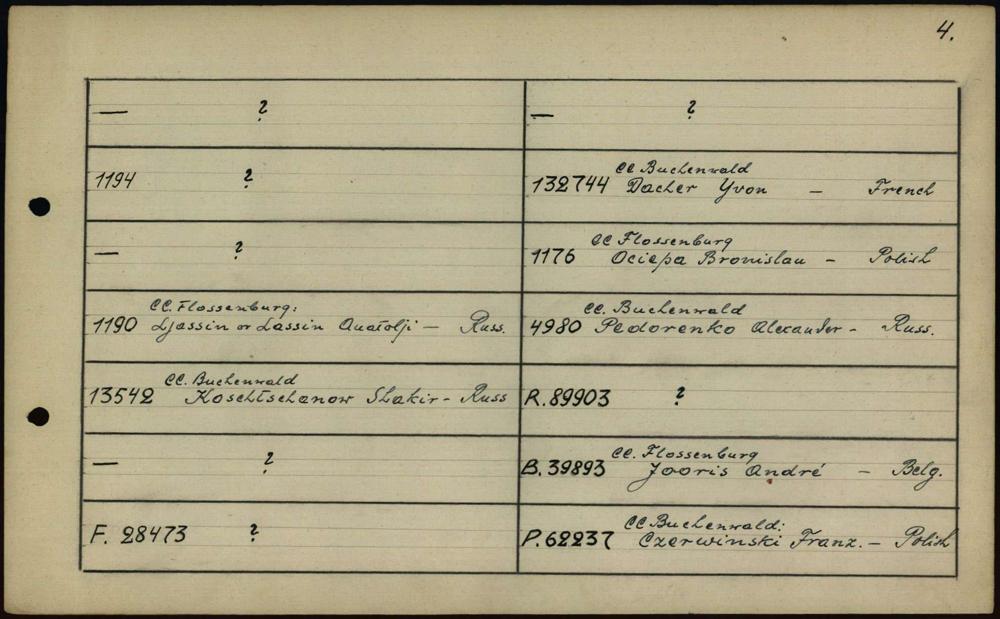 4.
— ?
— ?
1194 ?
CC Buchenwald
132744 Dacher Yvon — French
— ?
CC Flossenburg
1176 Ociepa Bronislau — Polish
CC. Flossenburg:
1190 Ljassin or Lassin Anatolji — Russ.
CC. Buchenwald
4980 Pedorenko Alexander - Russ.
CC. Buchenwald
13542 Koschtschanow Shakir - Russ
R. 89903 ?
— ?
CC. Flossenburg
B. 39893 Jooris André — Belg.
F. 28473 ?
CC Buchenwald:
P. 62237 Czerwinski Franz. — Polish